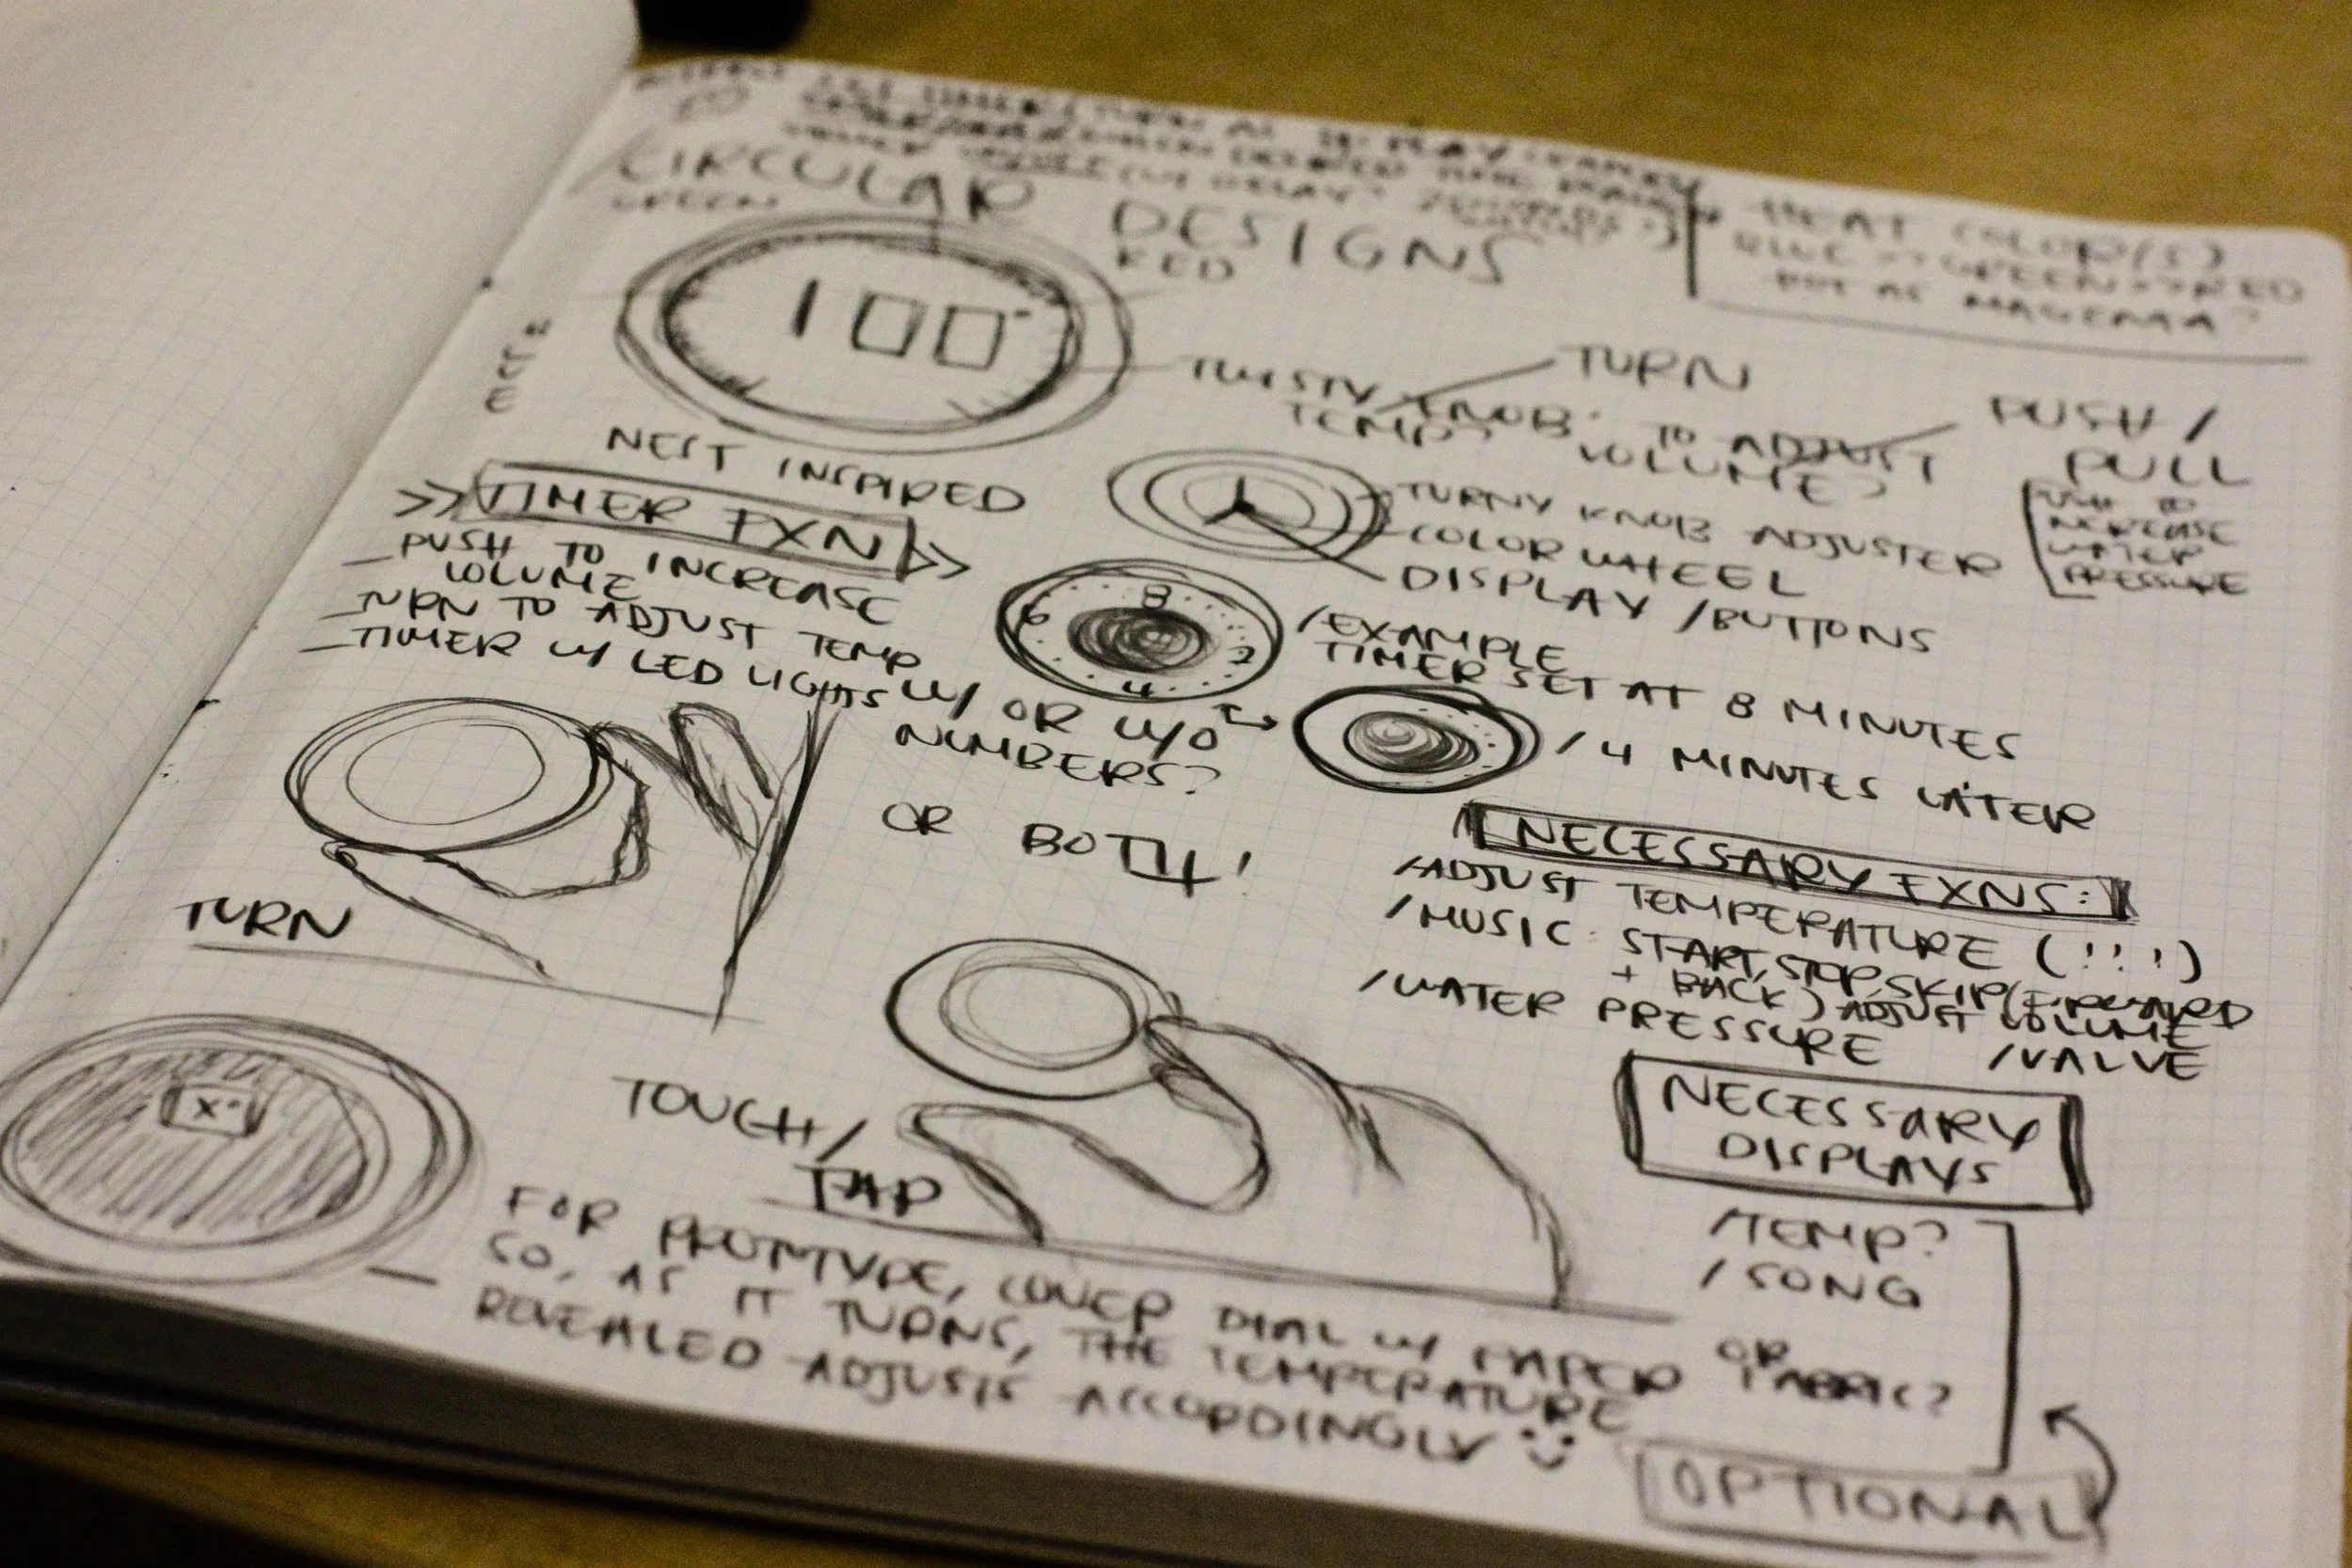 CIRCULAR DESIGNS
GREEN
RED
HEAT COLOR(S)
BLUE -> GREEN -> RED
MAGENTA?
BLUE
100°
NEST INSPIRED
TWISTY KNOB TO ADJUST
TEMP? VOLUME?
TURN
PUSH /
PULL
PUSH TO
INCREASE
WATER
PRESSURE
TURNY KNOB ADJUSTER
COLOR WHEEL
DISPLAY / BUTTONS
>> TIMER FXN >>
- PUSH TO INCREASE
VOLUME
- TURN TO ADJUST TEMP
- TIMER W/ LED LIGHTS W/ OR W/O
NUMBERS?
OR BOTH!
8
6
2
4
/ EXAMPLE
TIMER SET AT 8 MINUTES
/ 4 MINUTES LATER
TURN
NECESSARY FXNS:
/ ADJUST TEMPERATURE (!!!)
/ MUSIC: START, STOP, SKIP (FORWARD
+ BACK) ADJUST VOLUME
/ WATER PRESSURE / VALVE
TOUCH /
TAP
X°
NECESSARY
DISPLAYS
/ TEMP?
/ SONG
OPTIONAL
— FOR PROTOTYPE, COVER DIAL W/ PAPER OR FABRIC?
SO, AS IT TURNS, THE TEMPERATURE
REVEALED ADJUSTS ACCORDINGLY :)